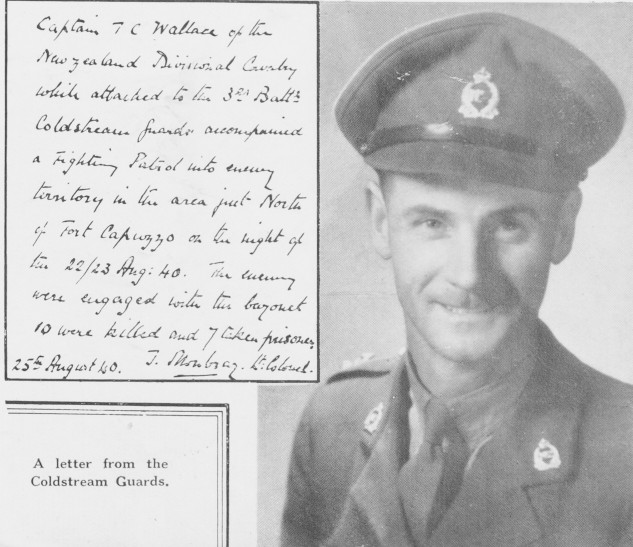 Captain T C Wallace of the
New zealand Divisional Cavalry
while attached to the 3rd Battn
Coldstream Guards accompained
a Fighting Patrol into enemy
territory in the area just North
of Fort Capuzzo on the night of
the 22/23 Aug: 40. The enemy
were engaged with the bayonet
10 were killed and 7 taken prisoner.
25th August 40. J. Moubray. Lt. Colonel.
A letter from the
Coldstream Guards.